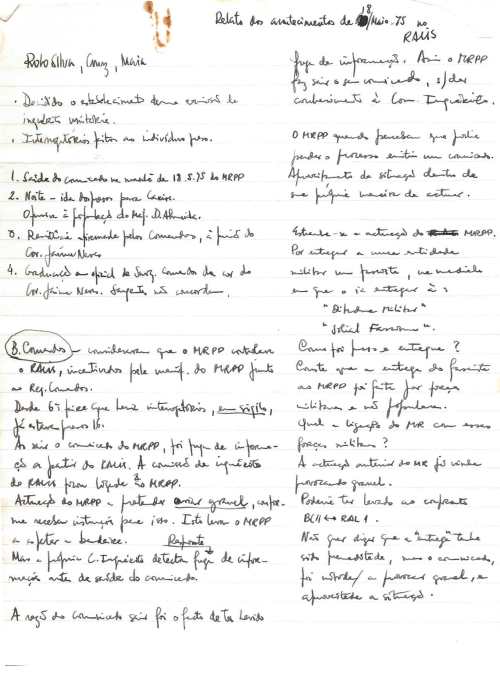 Relato dos acontecimentos de 18/Maio.75 no
RALIS
Robo Silva, Cruz, Maria
. Decidido o estabelecimento duma comissão de
inquérito unitária.
. Interrogatórios feitos aos indivíduos presos.
1. Saída do comunicado na manhã de 18.5.75 do MRPP
2. Noite - ida dos presos para Caxias.
à população do
3. Reunião pelos Comandos, à
Cor. Jaime Neves
4. Graduação em oficial do Sarg. Comandos da cor do
Cor. Jaime Neves. Sargentos não concordam.
B. Comandos - consideravam que o MRPP controlava
o RALIS, incentivados pela manif. do MRPP junto
ao Reg. Comandos.
Desde 6ª feira que havia interrogatórios, em sigilo,
já estava preso 1 b.
Ao sair o comunicado do MRPP, foi fuga de informa-
ção a partir do RALIS. A comissão de inquérito
do RALIS ligada ao MRPP.
Actuação do MRPP - pretender criar gravel, confor-
me receber instruções para isso. Isto leva o MRPP
a a bandeira. Resposta
Mas a própria C. Inquérito detecta fuga de infor-
mações antes da saída do comunicado.
A razão do Comunicado sair foi o facto de ter havido
fuga de informação. Assim o MRPP
fez sair o seu comunicado, s/ dar
conhecimento à Com. Inquérito.
O MRPP quando percebeu que podia
perder o processo emitiu um comunicado.
Aproveitamento da situação dentro da
sua própria maneira de actuar.
Estranha-se a actuação do MRPP.
Por entregar a uma entidade
militar um fascista, na medida
em que o ia entregar à:
"Ditadura Militar"
"Social Fascismo".
Como foi preso e entregue?
Consta que a entrega do fascista
ao MRPP foi feita por forças
militares e não populares.
Qual a ligação do MR com essas
forças militares?
A actuação anterior do MR foi sendo
provocando gravel.
Poderia ter levado ao confronto
BC11 ↔ RAL1.
Não quer dizer que a "entrega" tenha
sido premeditada, mas o comunicado,
foi a provocar gravel, e
aproveitada a situação.